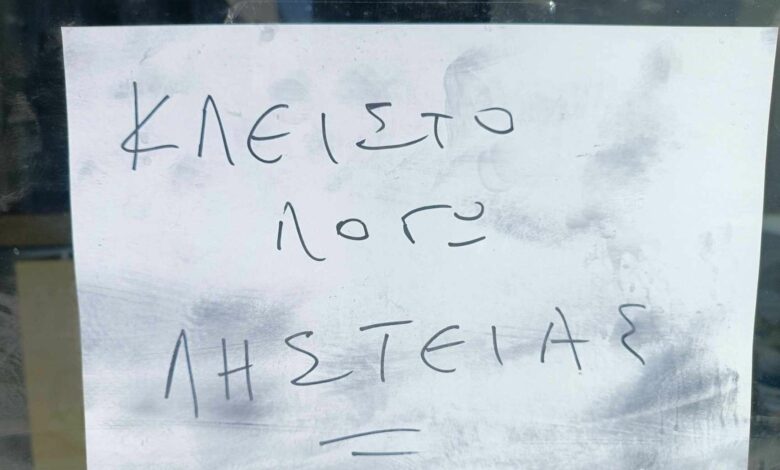 ΚΛΕΙΣΤΟ
ΛΟΓΩ
ΛΗΣΤΕΙΑΣ